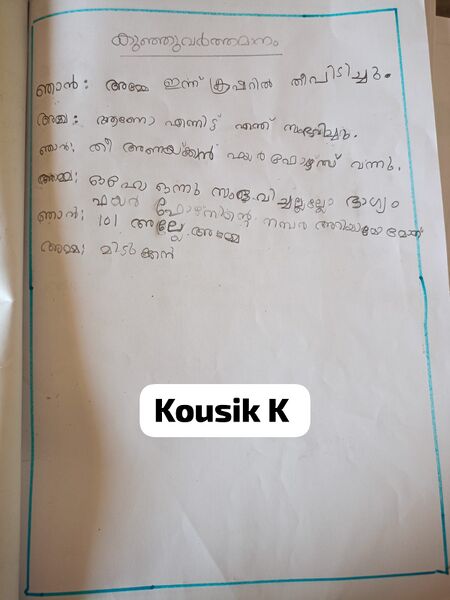 കുഞ്ഞുവർത്തമാനം
ഞാൻ: അമ്മേ ഇന്ന് ക്രഷറിൽ തീപിടിച്ചു.
അമ്മ: ആണോ എന്നിട്ട് എന്ത് സംഭവിച്ചു.
ഞാൻ: തീ അണയ്ക്കാൻ ഫയർ ഫോഴ്സ് വന്നു.
അമ്മ: ഓഹോ ഒന്നും സംഭവിച്ചല്ലല്ലോ ഭാഗ്യം
ഫയർ ഫോഴ്സിന്റെ നമ്പർ അറിയാമോ
ഞാൻ: 101 അല്ലേ അമ്മേ
അമ്മ: മിടുക്കൻ
Kousik K